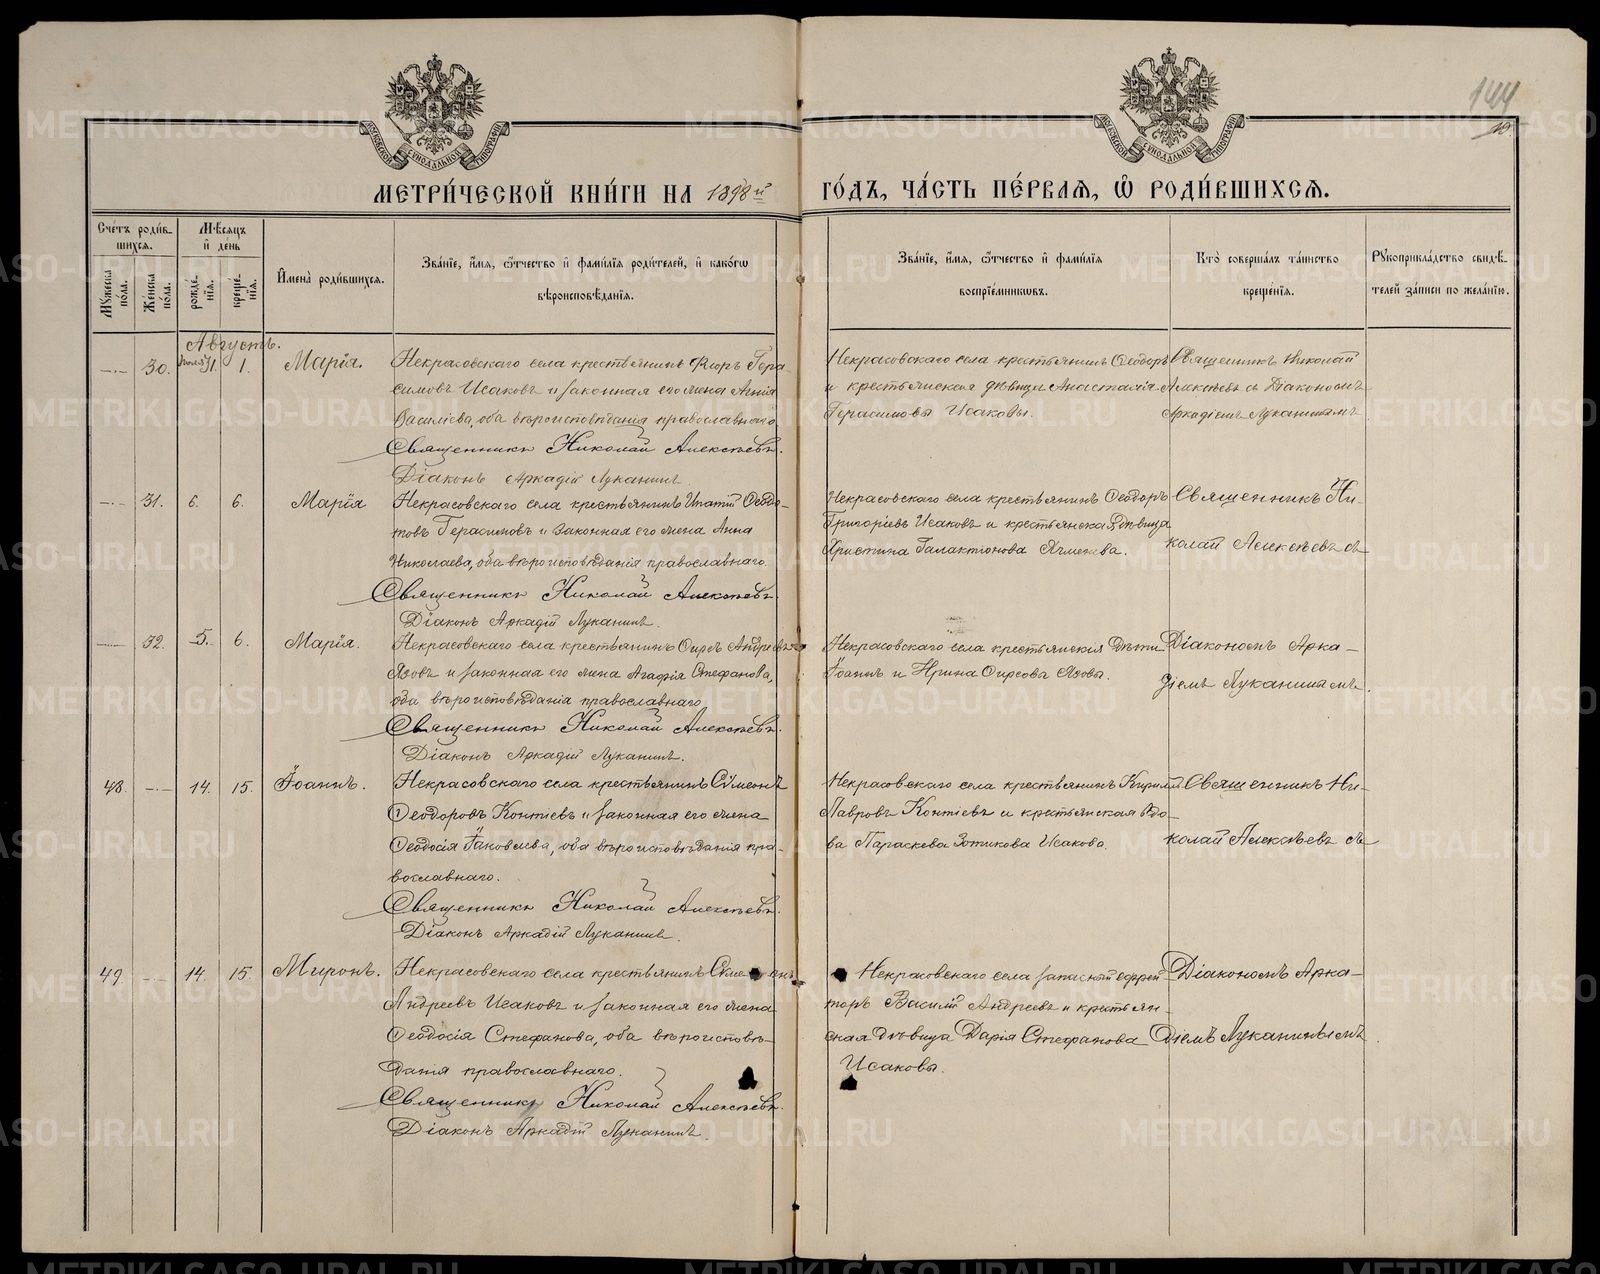 144
МЕТРИ́ЧЕСКОЙ КНИ́ГИ НА 1898й ГО́ДЪ, ЧА́СТЬ ПЕ́РВАЯ, Ѡ РОДИ́ВШИХСЯ.
Сче́тъ роди́вшихся.
Му́жеска по́ла.
Же́нска по́ла.
Мѣ́сяцъ и де́нь
рожде́нїя.
креще́нїя.
И҆мена̀ роди́вшихся.
Зва́нїе, и҆́мя, ѻ҆́тчество и҆ фами́лїя роди́телей, и҆ како́гѡ
вѣроисповѣ́данїя.
Зва́нїе, и҆́мя, ѻ҆́тчество и҆ фами́лїя
воспрїе́мникѡвъ.
Кто̀ соверша́лъ та́инство
креще́нїя.
Рꙋкоприкла́дство свидѣ́телей за́писи по жела́нїю.
Августъ.
30. Іюля 31. 1. Марія.
Некрасовскаго села крестьянинъ Флоръ Гера-
симовъ Исаковъ и законная его жена Агнія
Василіева, оба вѣроисповѣданія православнаго
Священникъ Николай Алексѣевъ.
Діаконъ Аркадій Луканинъ.
Некрасовскаго села крестьянинъ Ѳеодоръ
и крестьянская дѣвица Анастасія
Герасимовы Исаковы.
Священникъ Николай
Алексѣевъ съ Діакономъ
Аркадіемъ Луканинымъ
31. 6. 6. Марія
Некрасовскаго села крестьянинъ Ипатій Ѳеодо-
товъ Герасимовъ и законная его жена Анна
Николаева, оба вѣроисповѣданія православнаго.
Священникъ Николай Алексѣевъ.
Діаконъ Аркадій Луканинъ.
Некрасовскаго села крестьянинъ Ѳеодоръ
Григоріевъ Исаковъ и крестьянская дѣвица
Христина Галактіонова
Священникъ Ни-
колай Алексѣевъ съ
32. 5. 6. Марія.
Некрасовскаго села крестьянинъ Ѳирсъ Андреевъ
Язовъ и законная его жена Агафія Стефанова,
оба вѣроисповѣданія православнаго
Священникъ Николай Алексѣевъ.
Діаконъ Аркадій Луканинъ.
Некрасовскаго села крестьянскія дѣти
Іоаннъ и Ирина Ѳирсовы Язовы.
Діакономъ Арка-
діемъ Луканинымъ.
48. 14. 15. Іоаннъ.
Некрасовскаго села крестьянинъ Сѵмеонъ
Ѳеодоровъ Контіевъ и законная его жена
Ѳеодосія Іаковлева, оба вѣроисповѣданія пра-
вославнаго.
Священникъ Николай Алексѣевъ.
Діаконъ Аркадій Луканинъ.
Некрасовскаго села крестьянинъ Кириллъ
Лавровъ Контіевъ и крестьянская вдо-
ва Параскева Зотикова Исакова.
Священникъ Ни-
колай Алексѣевъ съ
49. 14. 15. Миронъ.
Некрасовскаго села крестьянинъ Сѵмеонъ
Андреевъ Исаковъ и законная его жена
Ѳеодосія Стефанова, оба вѣроисповѣ-
данія православнаго.
Священникъ Николай Алексѣевъ.
Діаконъ Аркадій Луканинъ.
Некрасовскаго села запасной ефрей-
торъ Василій Андреевъ и крестьян-
ская дѣвица Дарія Стефанова
Исаковы.
Діакономъ Арка-
діемъ Луканинымъ
METRIKI.GASO-URAL.RU